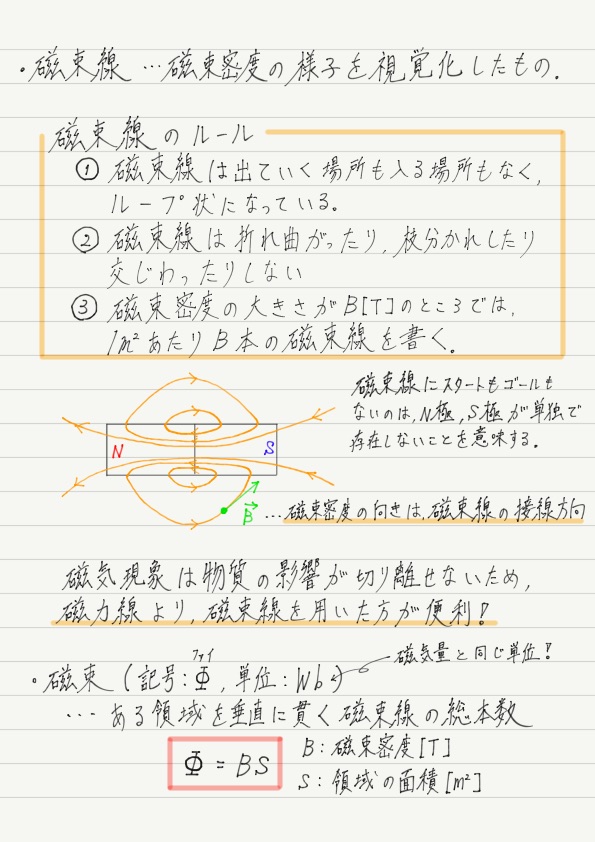 ・磁束線 …磁束密度の様子を視覚化したもの.
磁束線のルール
① 磁束線は出ていく場所も入る場所もなく,
ループ状になっている。
② 磁束線は折れ曲がったり,枝分かれしたり
交じわったりしない
③ 磁束密度の大きさがB[T]のところでは,
1m²あたりB本の磁束線を書く。
磁束線にスタートもゴールも
ないのは,N極,S極が単独で
存在しないことを意味する。
N
S
B→ …磁束密度の向きは,磁束線の接線方向
磁気現象は物質の影響が切り離せないため,
磁力線より,磁束線を用いた方が便利!
磁気量と同じ単位!
ファイ
・磁束 (記号:Φ,単位:Wb)
… ある領域を垂直に貫く磁束線の総本数
Φ = BS
B:磁束密度[T]
S:領域の面積[m²]